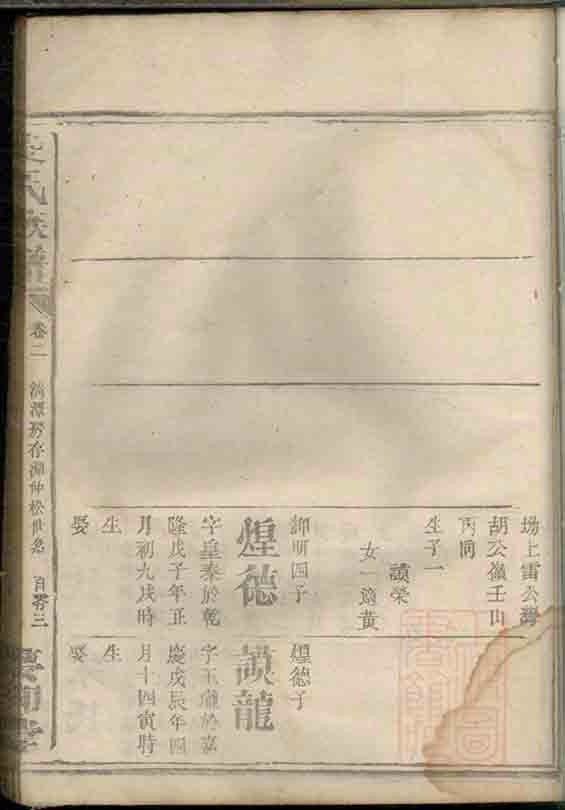 塲上雷公灣
胡公嶺壬山
丙向
生子一
讃榮
女一適黃
卸明四子
煌德
字重泰於乾
隆戊子年正
月初九戌時
生
娶
煌德子
龍
字玉瓏於嘉
慶戊辰年四
月十四寅時
生
娶
氏族譜
卷二
房存湖仲松世系
百零三